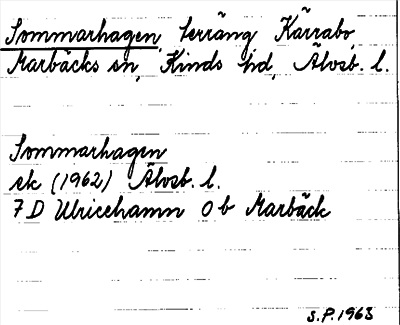 Sommarhagen, terräng Kärrabo,
Marbäcks sn, Kinds hd, Älvsb. l.
Sommarhagen
ek (1962) Älvsb. l.
7 D Ulricehamn 0 b Marbäck
S.P. 1963